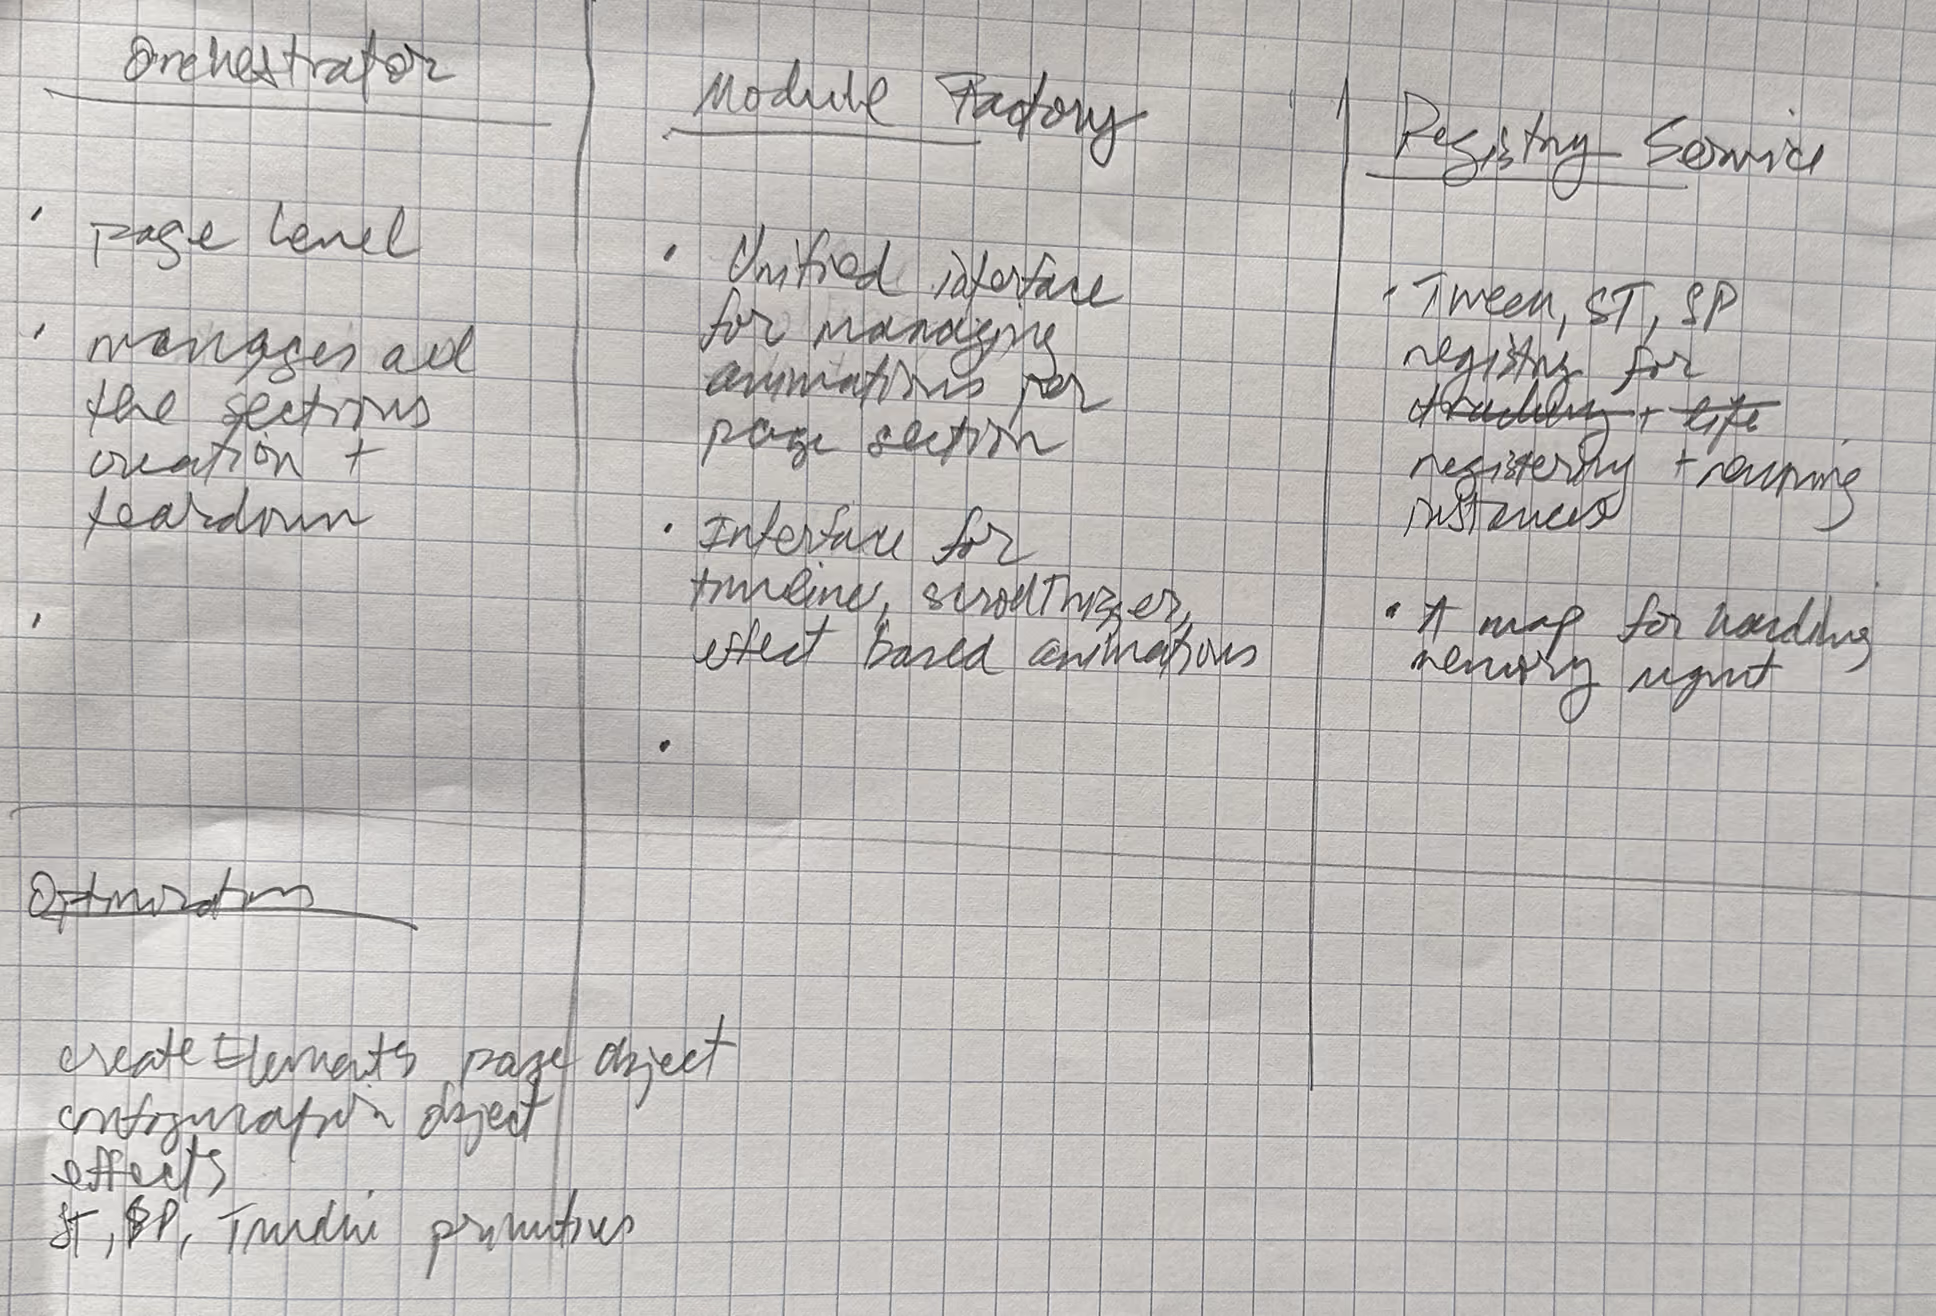 Orchestrator
• page level
• manages all
the sections
creation +
teardown
•
Module Factory
• Unified interface
for managing
animations per
page section
• Interface for
timeline, scrollTrigger,
effect based animations
•
Registry Service
• Tween, ST, SP
registry for
tracking + life
registering + removing
instances
• A map for handling
memory mgmt
Optimizations
createElements page object
configuration object
effects
ST, SP, Timeline primitives